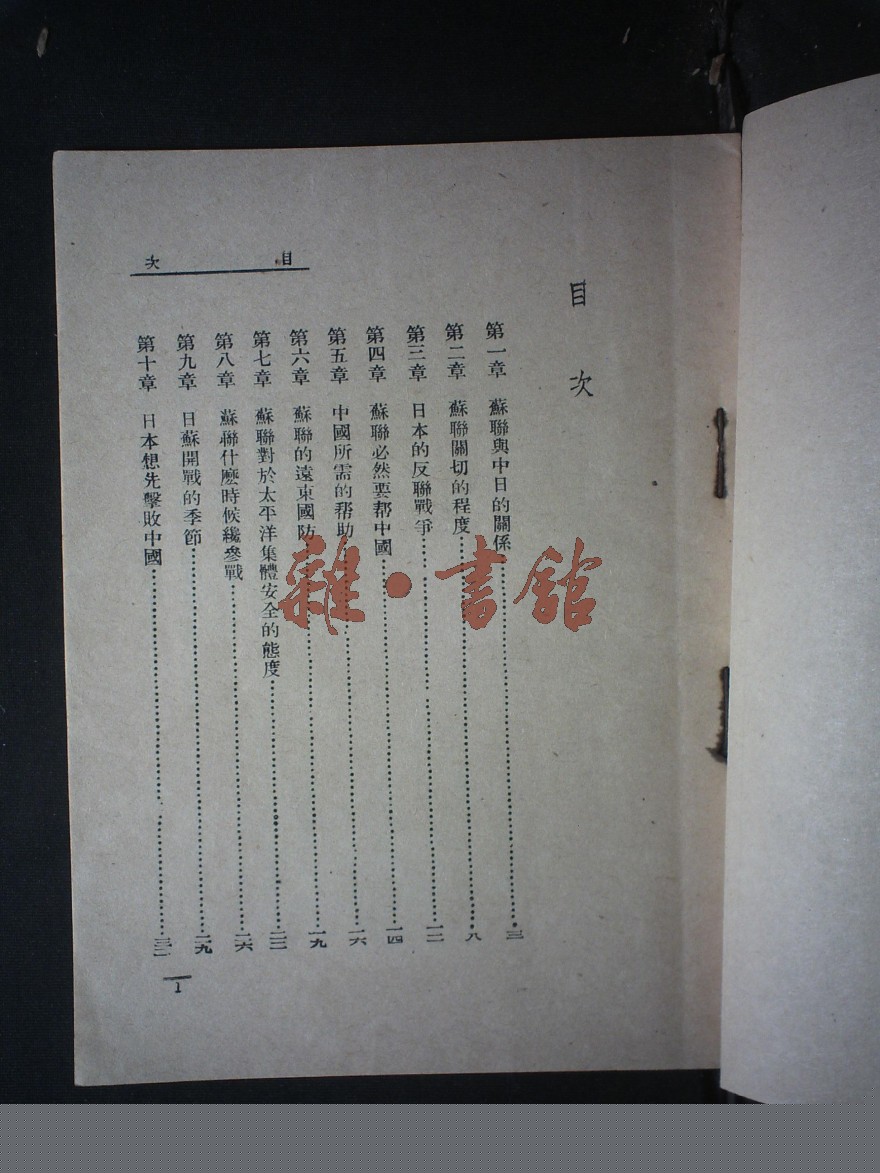 目次
目次
第一章 蘇聯與中日的關係……三
第二章 蘇聯關切的程度……八
第三章 日本的反聯戰爭……一二
第四章 蘇聯必然要帮中國……一四
第五章 中國所需的帮助……一六
第六章 蘇聯的遠東國防……一九
第七章 蘇聯對於太平洋集體安全的態度……二二
第八章 蘇聯什麽時候纔參戰……二六
第九章 日蘇開戰的季節……二九
第十章 日本想先擊敗中國……三二
1
雜·書館